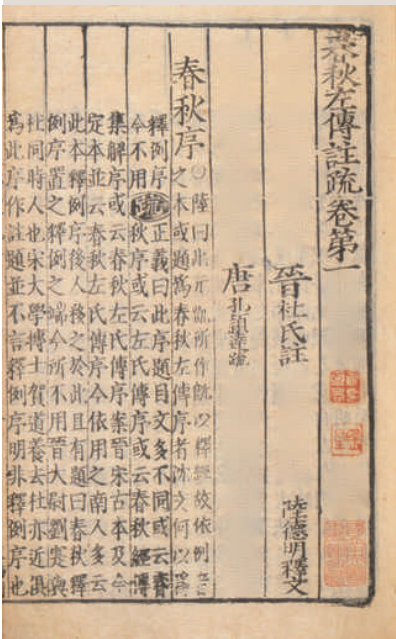 春秋左傳註疏卷第一
晉杜氏註
陸德明釋文
唐孔穎達疏
春秋序○陸曰此元凱所作既以釋經故依例音
之本或題爲春秋左傳序者沈文何以爲
釋例序正義曰此序題目文多不同或云春
今不用疏秋序或云左氏傳序或云春秋經傳
集解序或云春秋左氏傳序案晉宋古本及今
定本並云春秋左氏傳序今依用之南人多云
此本釋例序後人移之於此且有題曰春秋釋
例序置之釋例之端今所不用晉大尉劉寔與
杜同時人也宋大學博士賀道養去杜亦近俱
爲此序作註題並不言釋例序明非釋例序也